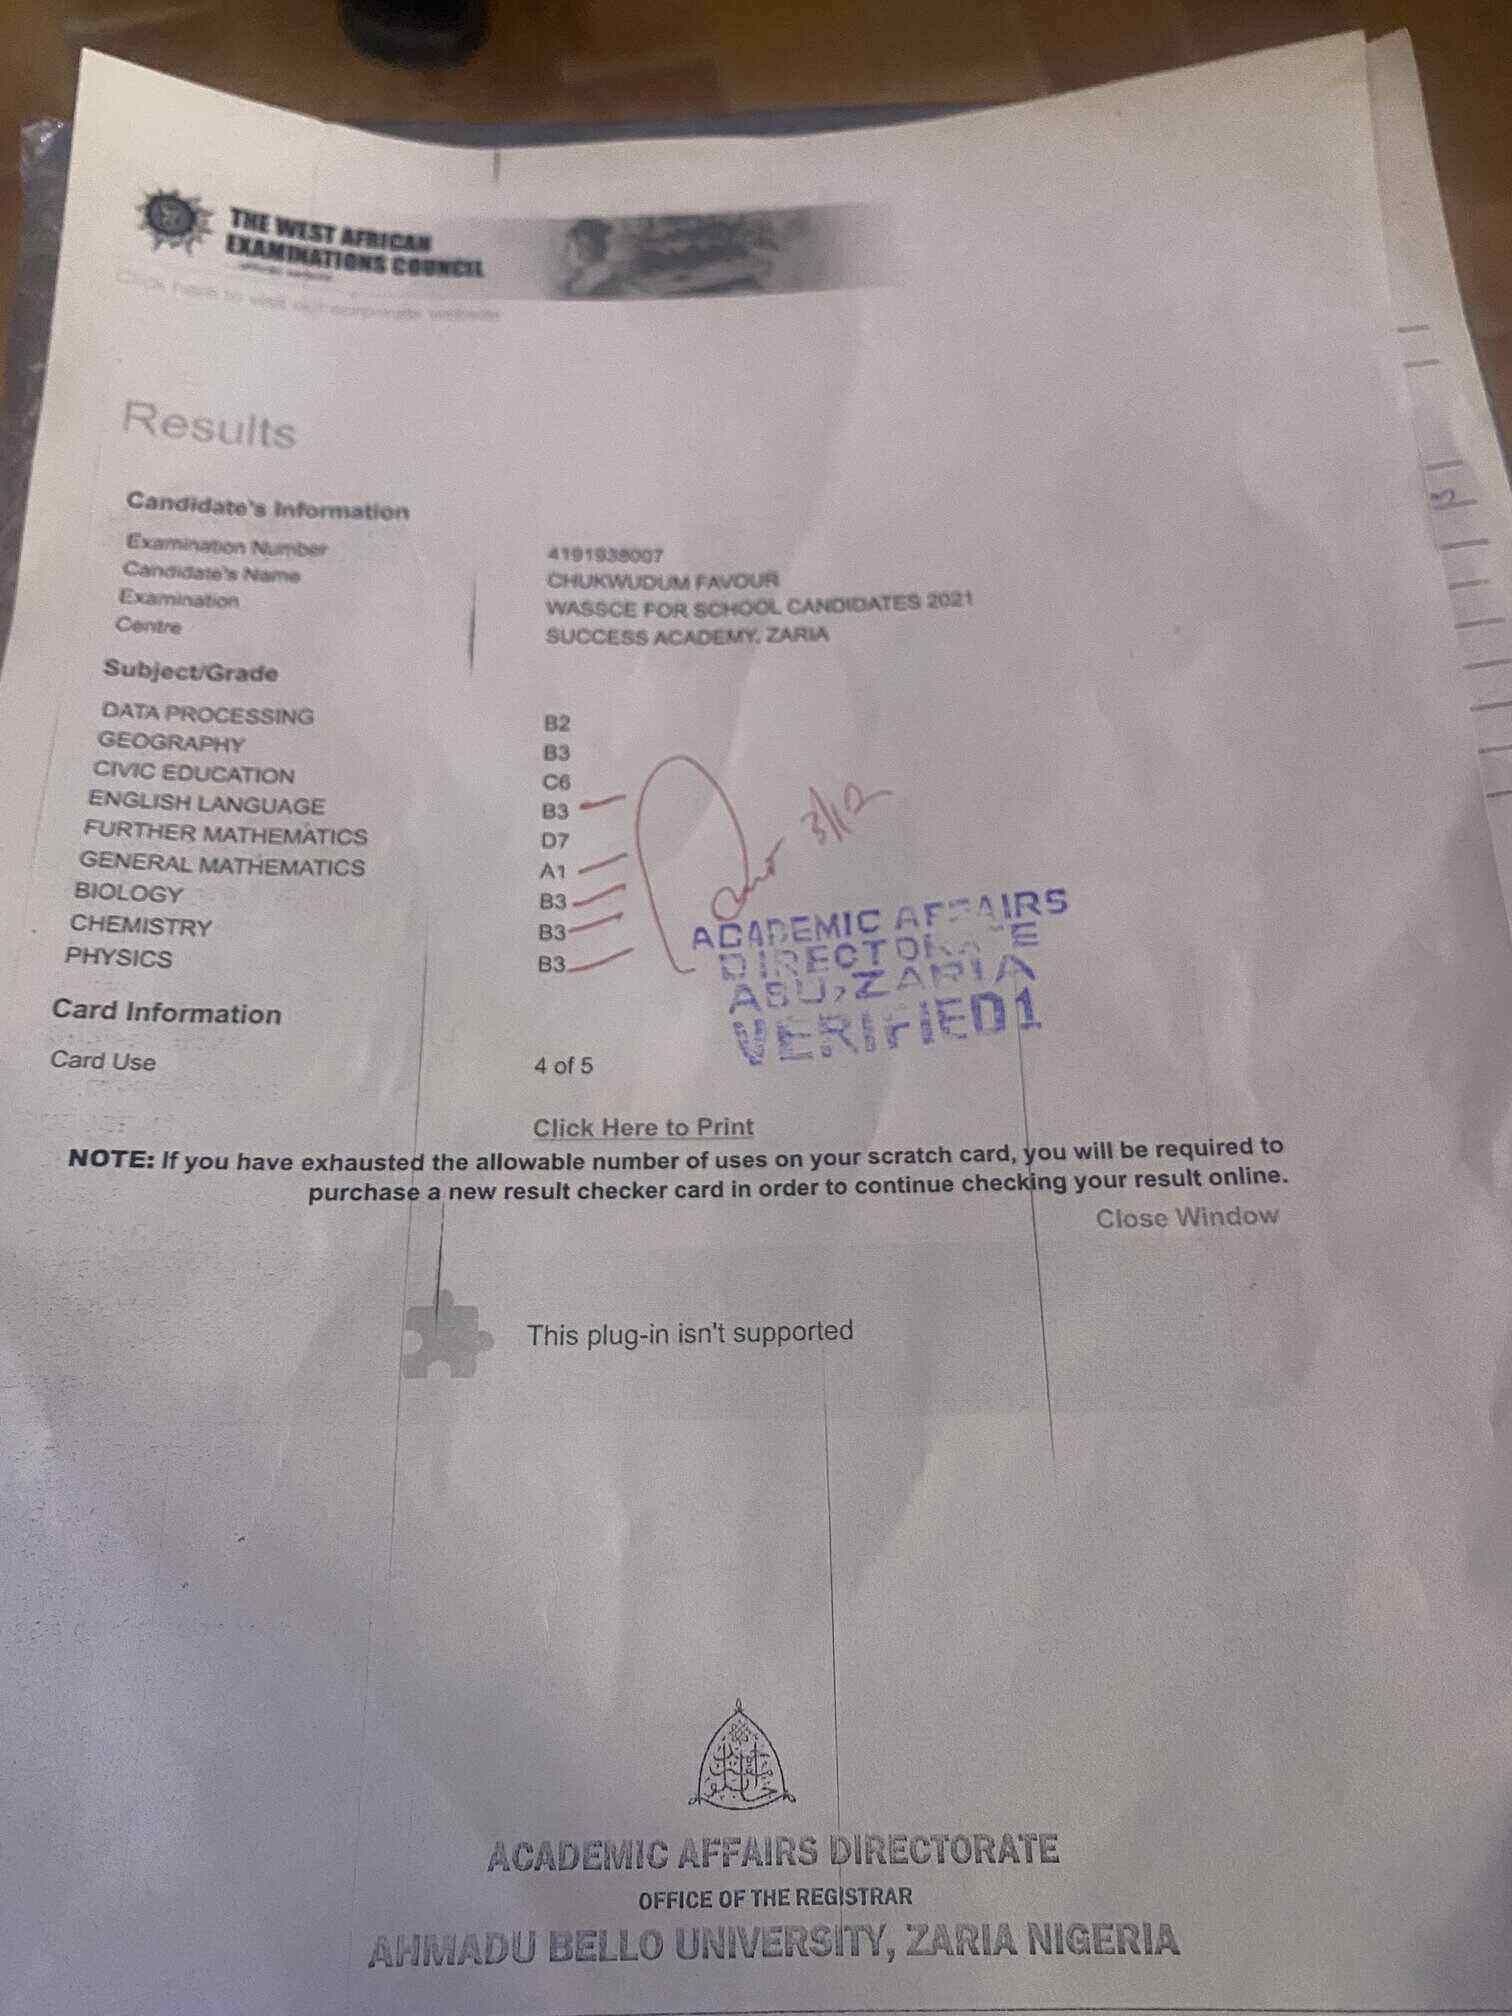 THE WEST AFRICAN
EXAMINATIONS COUNCIL
Click here to visit our corporate website
Results
Candidate's Information
Examination Number 4191938007
Candidate's Name CHUKWUDUM FAVOUR
Examination WASSCE FOR SCHOOL CANDIDATES 2021
Centre SUCCESS ACADEMY, ZARIA
Subject/Grade
DATA PROCESSING B2
GEOGRAPHY B3
CIVIC EDUCATION C6
ENGLISH LANGUAGE B3
FURTHER MATHEMATICS D7
GENERAL MATHEMATICS A1
BIOLOGY B3
CHEMISTRY B3
PHYSICS B3
3/12
ACADEMIC AFFAIRS
DIRECTORATE
ABU, ZARIA
VERIFIED 1
Card Information
Card Use 4 of 5
Click Here to Print
NOTE: If you have exhausted the allowable number of uses on your scratch card, you will be required to
purchase a new result checker card in order to continue checking your result online.
Close Window
This plug-in isn't supported
ACADEMIC AFFAIRS DIRECTORATE
OFFICE OF THE REGISTRAR
AHMADU BELLO UNIVERSITY, ZARIA NIGERIA